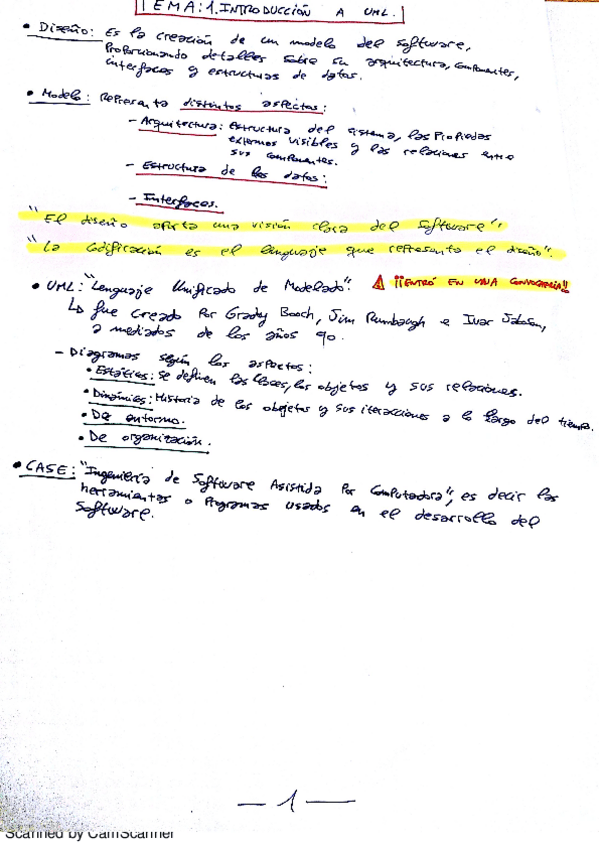 TEMA:1.INTRODUCCIÓN A UML.
• Diseño: Es la creación de un modelo del software,
Proporcionando detalles sobre su arquitectura, componentes,
interfaces y estructuras de datos.
• Modelo: Representa distintos aspectos:
- Arquitectura: Estructura del sistema, las Propiedas
externas visibles y las relaciones entre
sus componentes.
- Estructura de los datos:
- Interfaces.
"El diseño aporta una visión clara del software"
"La codificación es el lenguaje que representa el diseño".
• UML: "Lenguaje Unificado de Modelado". ⚠ ¡¡ENTRÓ EN UNA CONVOCATORIA!!
↳ fue creado Por Grady Booch, Jim Rumbaugh e Ivar Jabson,
a mediados de los años 90.
- Diagramas según los aspectos:
• Estáticos: Se definen las clases, los objetos y sus relaciones.
• Dinámicos: Historia de los objetos y sus iteracciones a lo largo del tiempo.
• De entorno.
• De organización.
• CASE: "Ingeniería de Software Asistida Por Computadora", es decir las
herramientas o Programas usados en el desarrollo del
Software.
— 1 —
Scanned by CamScanner